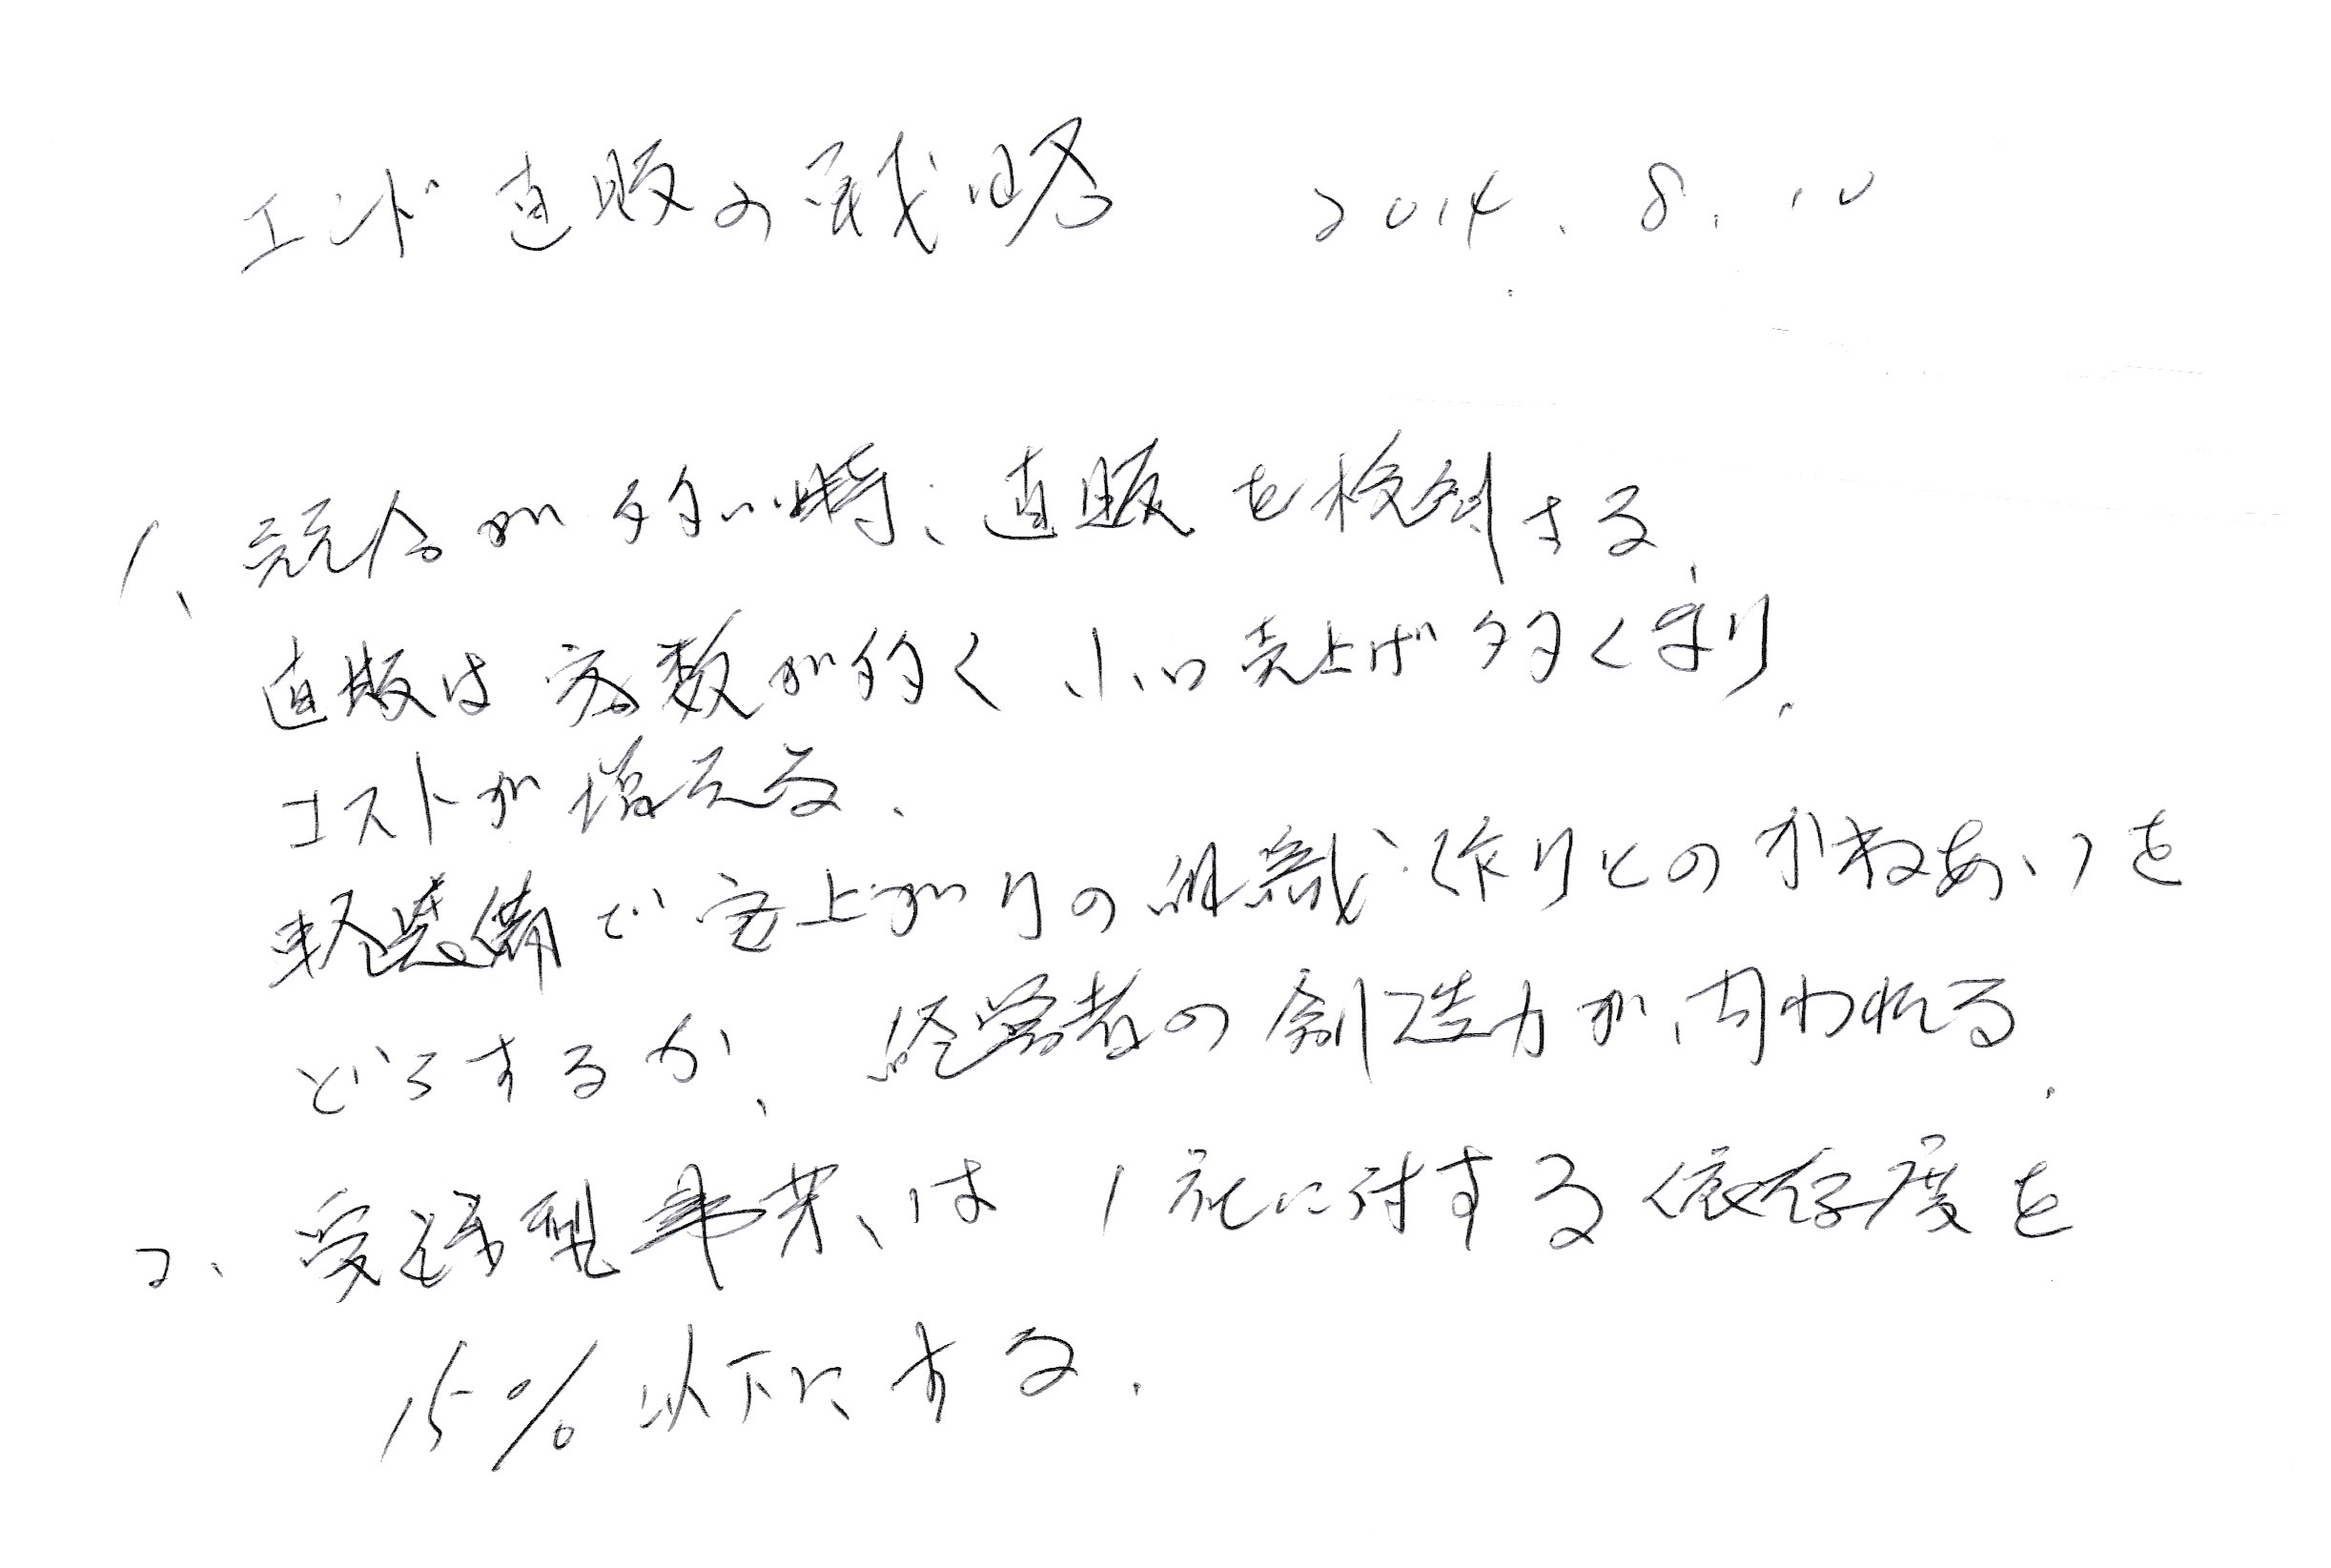 エンド直販の戦略 2014.8.10
1、競合が多い時、直販を検討する、
直販は客数が多く小口売上げ多くなり、
コストが増える、
軽装備で安上がりの組織作りとのかねあいを
どうするか、経営者の創造力が問われる、
2、受注型事業は1社に対する依存度を
15%以下にする、